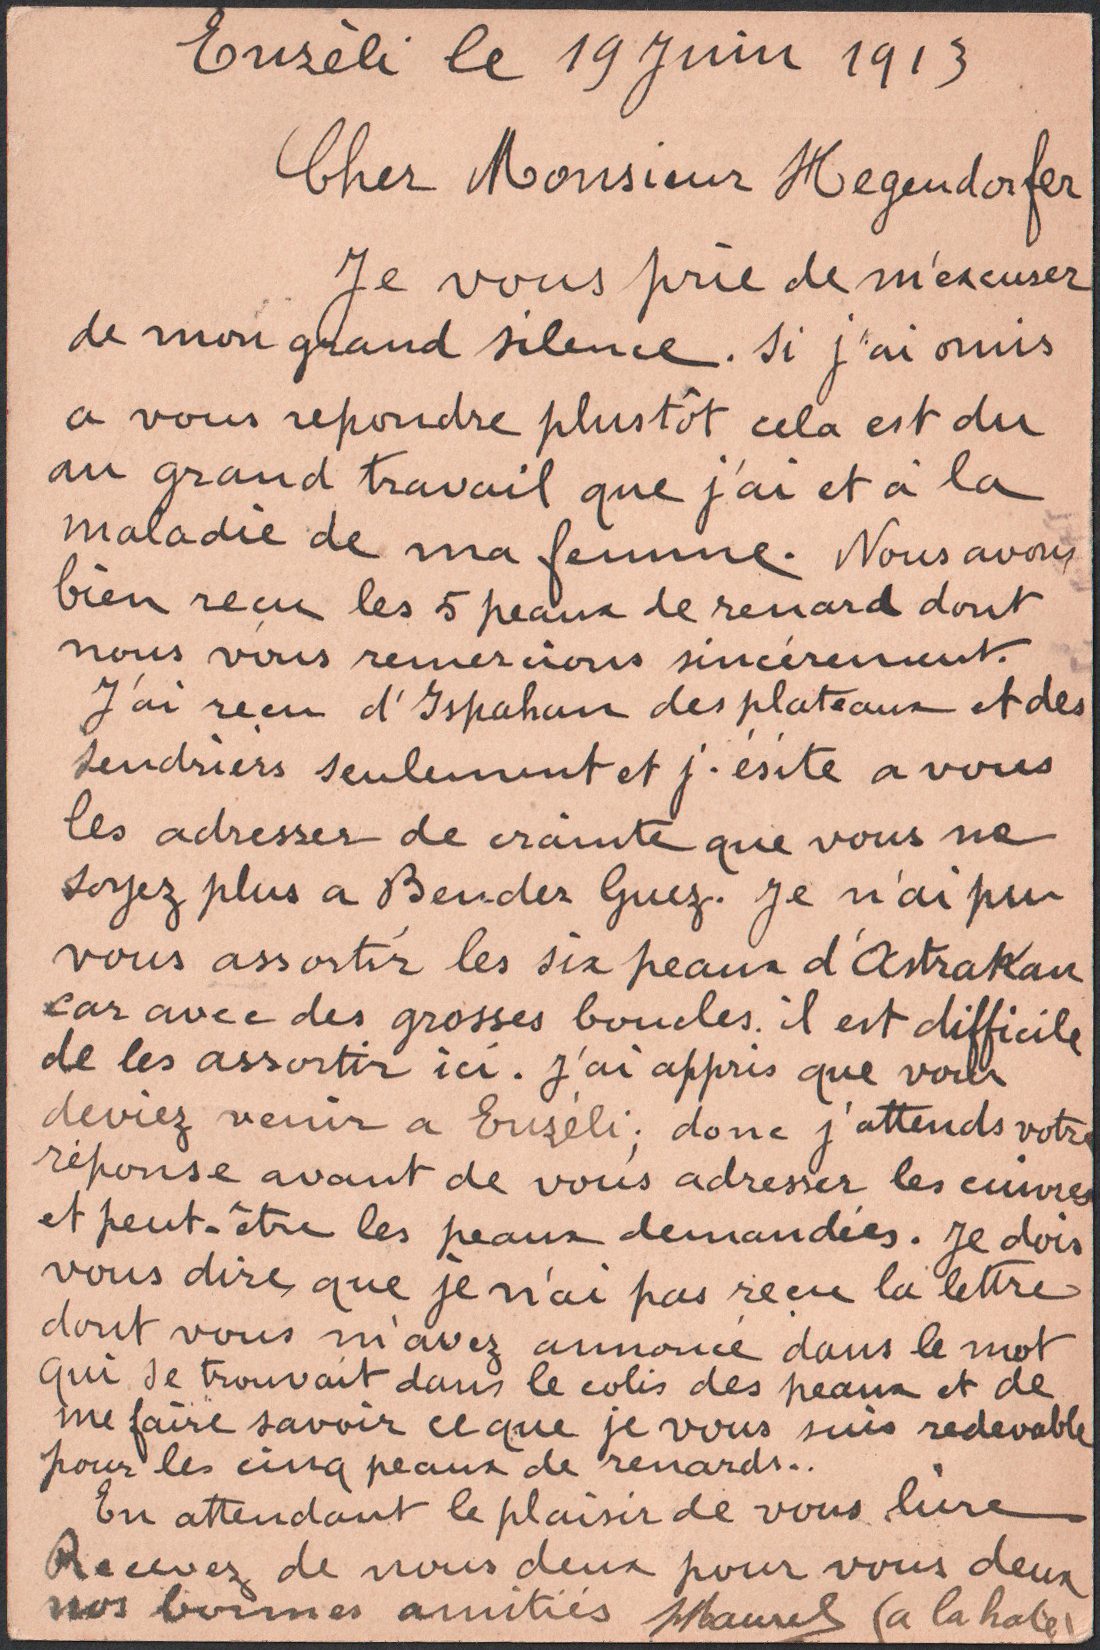 Enzéli le 19 Juin 1913
Cher Monsieur Hegendorfer
Je vous prie de m'excuser
de mon grand silence. Si j'ai omis
a vous repondre plustôt cela est du
au grand travail que j'ai et à la
maladie de ma femme. Nous avons
bien recu les 5 peaux de renard dont
nous vous remercions sincérement.
J'ai recu d'Ispahan des plateaux et des
sendriers seulement et j'ésite a vous
les adresser de crainte que vous ne
soyez plus a Bender Guez. Je n'ai pu
vous assortir les six peaux d'Astrakan
car avec des grosses boucles. il est difficile
de les assortir ici. J'ai appris que vous
deviez venir a Enzéli; donc j'attends votre
réponse avant de vous adresser les cuivres
et peut-être les peaux demandées. Je dois
vous dire que je n'ai pas recu la lettre
dont vous m'avez annoncé dans le mot
qui se trouvait dans le colis des peaux et de
me faire savoir ce que je vous suis redevable
pour les cinq peaux de renards..
En attendant le plaisir de vous lire
Recevez de nous deux pour vous deux
nos bonnes amitiés (a la hate)